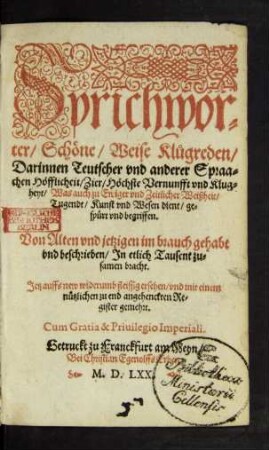 Sprichwör-
ter/ Schöne/ Weise Klůgreden/
Darinnen Teutscher vnd anderer Spraa-
chen Höfflicheit/ Zier/ Höchste Vernunfft vnd Klůg-
heyt/ Was auch zu Ewiger vnd Zeitlicher Weißheit/
Tugendt/ Kunst vnd Wesen dient/ ge-
spürt vnd begriffen.
Von Alten vnd jetzigen im brauch gehabt
vnd beschrieben/ In etlich Tausent zu-
samen bracht.
Jetz auffs new widerumb fleissig ersehen/ vnd mit einem
nützlichen zu end angehenckten Re-
gister gemehrt.
Cum Gratia & Priuilegio Imperiali.
Getruckt zu Franckfurt am Meyn/
Bei Christian Egenolffs Erben.
M. D. LXX.
Ex
Bibliotheca
Ministerii
Cellensis